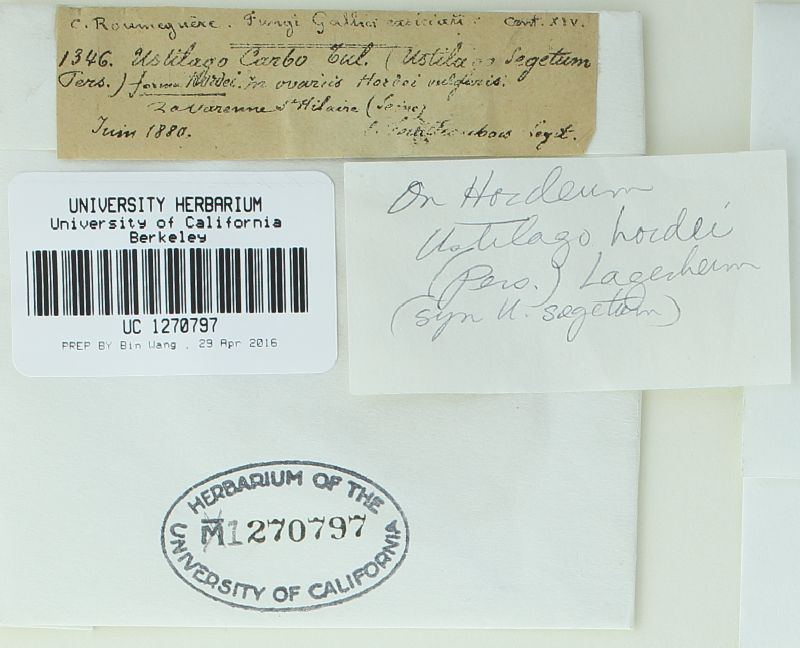 C. Roumeguère. Fungi Gallici exsiccati. Cent. XIV.
1346. Ustilago Carbo Tul. (Ustilago Segetum
Pers.) forma Hordei. In ovariis Hordei vulgaris.
La Varenne St Hilaire (Seine)
Juin 1880. Legit.
UNIVERSITY HERBARIUM
University of California
Berkeley
UC 1270797
PREP BY Bin Wang , 29 Apr 2016
On Hordeum
Ustilago hordei
(Pers.) Lagerheim
(syn U. segetum)
HERBARIUM OF THE
M1270797
UNIVERSITY OF CALIFORNIA